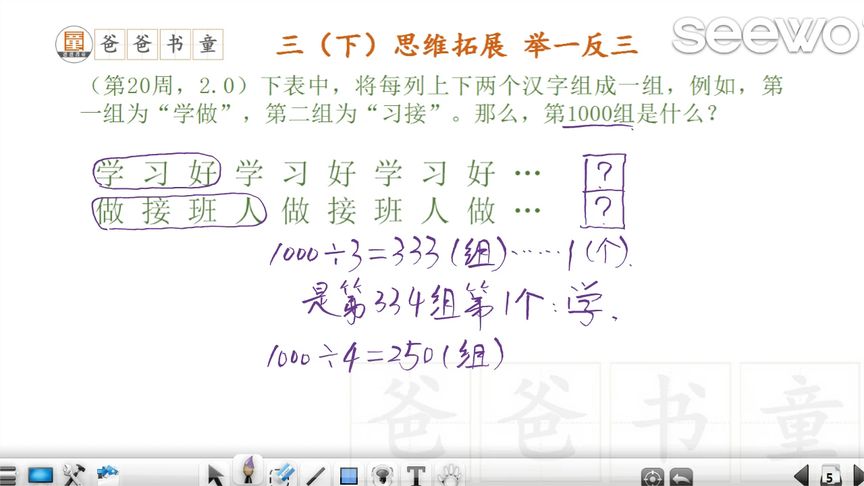 童 爸爸书童 三（下）思维拓展 举一反三 seewo
（第20周，2.0）下表中，将每列上下两个汉字组成一组，例如，第
一组为“学做”，第二组为“习接”。那么，第1000组是什么？
学 习 好 学 习 好 学 习 好 … ?
做 接 班 人 做 接 班 人 做 … ?
1000÷3=333(组)……1(个).
是第334组第1个:学.
1000÷4=250(组)
爸 爸 书 童
T 5